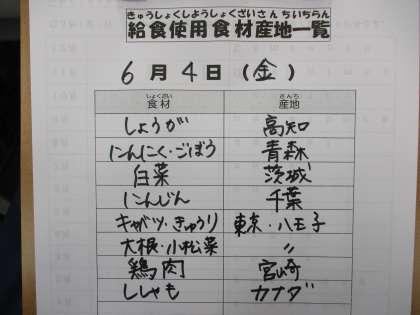 きゅうしょくしようしょくざいさんちいちらん
給食使用食材産地一覧
6月4日(金)
しょくざい さんち
食材 産地
しょうが 高知
にんにく・ごぼう 青森
白菜 茨城
にんじん 千葉
キャベツ・きゅうり 東京・八王子
大根・小松菜 〃
鶏肉 宮崎
ししゃも カナダ